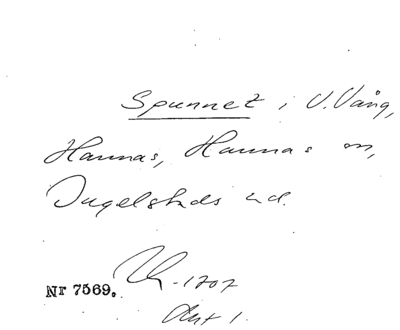 Spunnet i V. Vång,
Hannas, Hannas sn,
Ingelstads hd.
Nr 7569.
-1707
Akt 1.